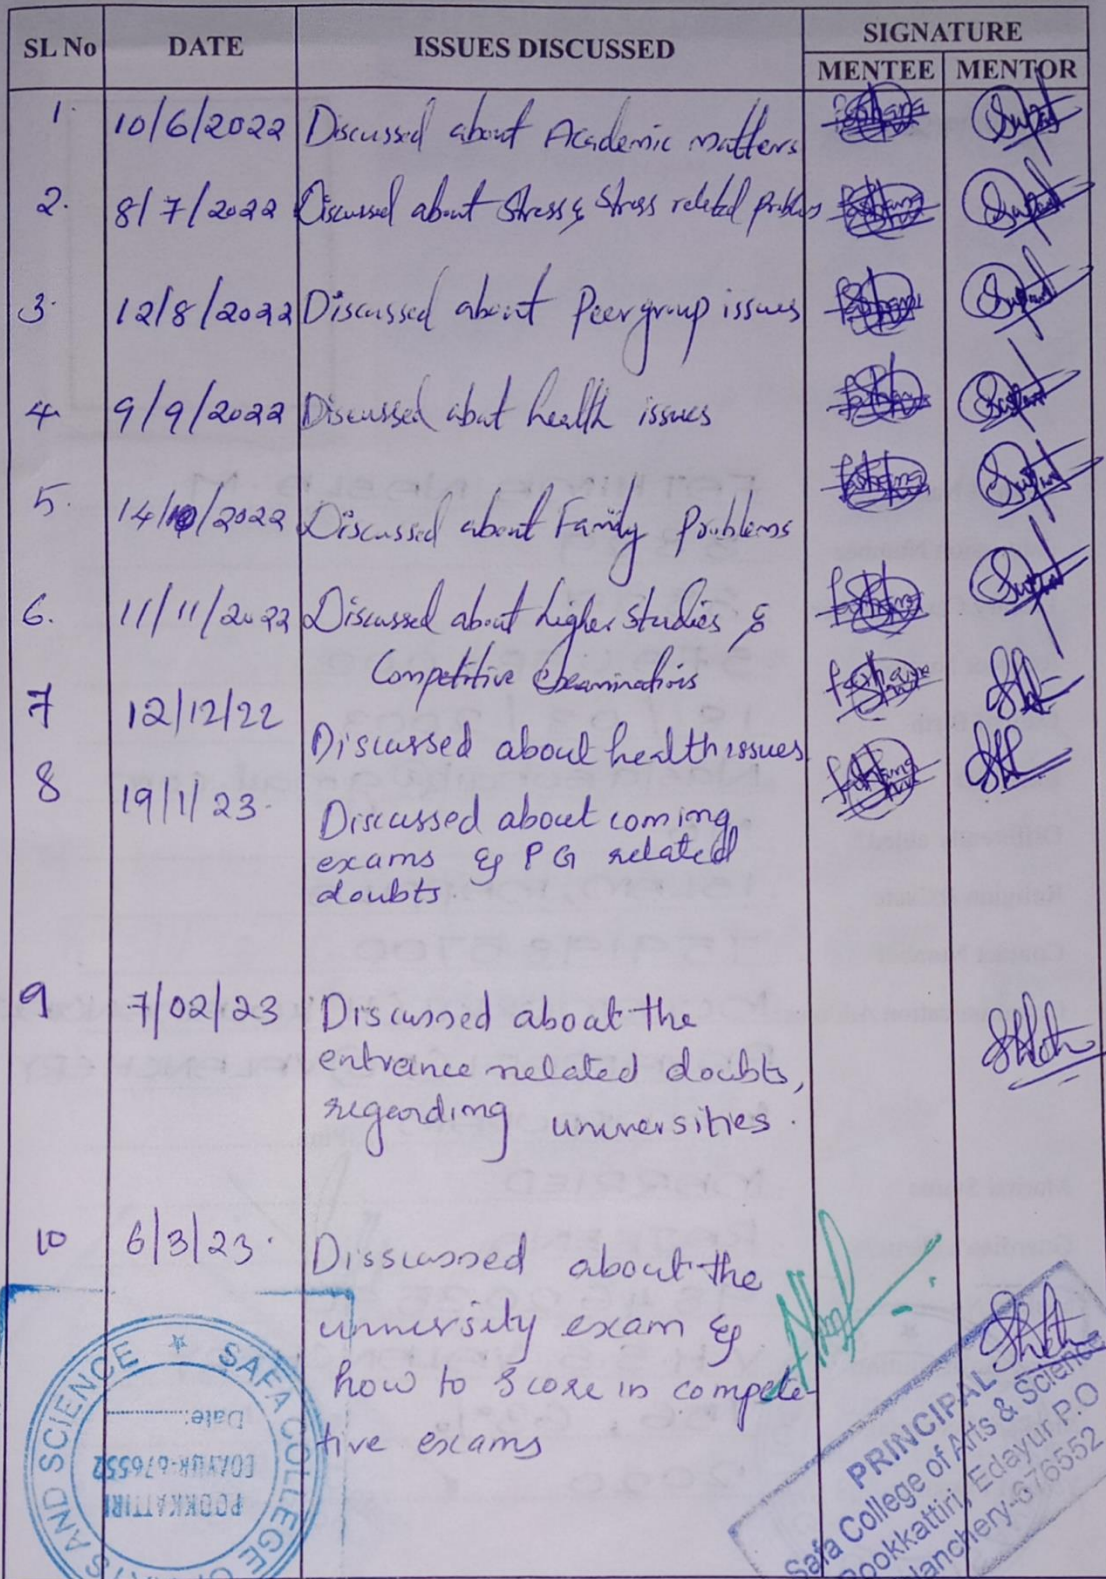 SL No DATE ISSUES DISCUSSED SIGNATURE
MENTEE MENTOR
1. 10/6/2022 Discussed about Academic matters
2. 8/7/2022 Discussed about Stress & Stress related problems
3. 12/8/2022 Discussed about Peergroup issues
4. 9/9/2022 Discussed about health issues
5. 14/10/2022 Discussed about Family problems
6. 11/11/2022 Discussed about higher studies &
Competitive Examinations
7 12/12/22 Discussed about health issues
8 19/1/23. Discussed about coming
exams & PG related
doubts.
9 7/02/23 Discussed about the
entrance related doubts,
regarding universities.
10 6/3/23. Disscussed about the
university exam &
how to score in compete-
tive exams
SAFA COLLEGE OF ARTS AND SCIENCE
Date:
EDAYUR-676552
POOKKATTIRI
PRINCIPAL
Safa College of Arts & Science
Pookkattiri, Edayur P.O
lanchery-676552